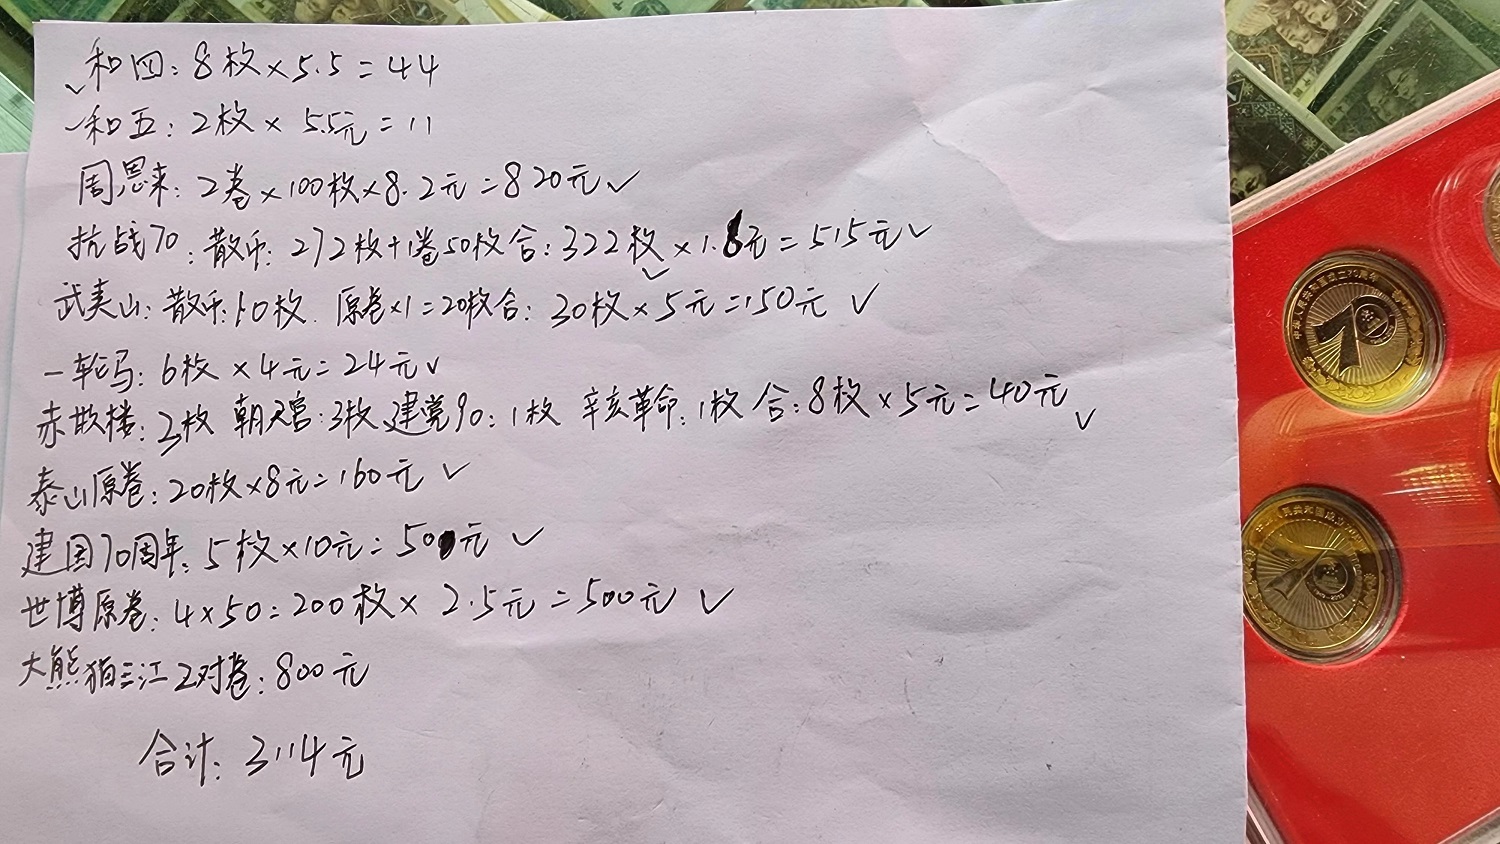 ✓和四：8枚×5.5=44
✓和五：2枚×5.5元=11
周恩来：2卷×100枚×8.2元=820元✓
抗战70：散币：272枚+1卷50枚合：322枚×1.6元=515元✓
✓
武夷山：散币：10枚 原卷×1=20枚合：30枚×5元=150元 ✓
一轮马：6枚×4元=24元✓
赤嵌楼：3枚 朝天宫：3枚 建党90：1枚 辛亥革命：1枚 合：8枚×5元=40元✓
泰山原卷：20枚×8元=160元 ✓
建国70周年：5枚×10元=50元 ✓
世博原卷：4×50=200枚×2.5元=500元 ✓
大熊猫三江2对卷：800元
合计：3114元